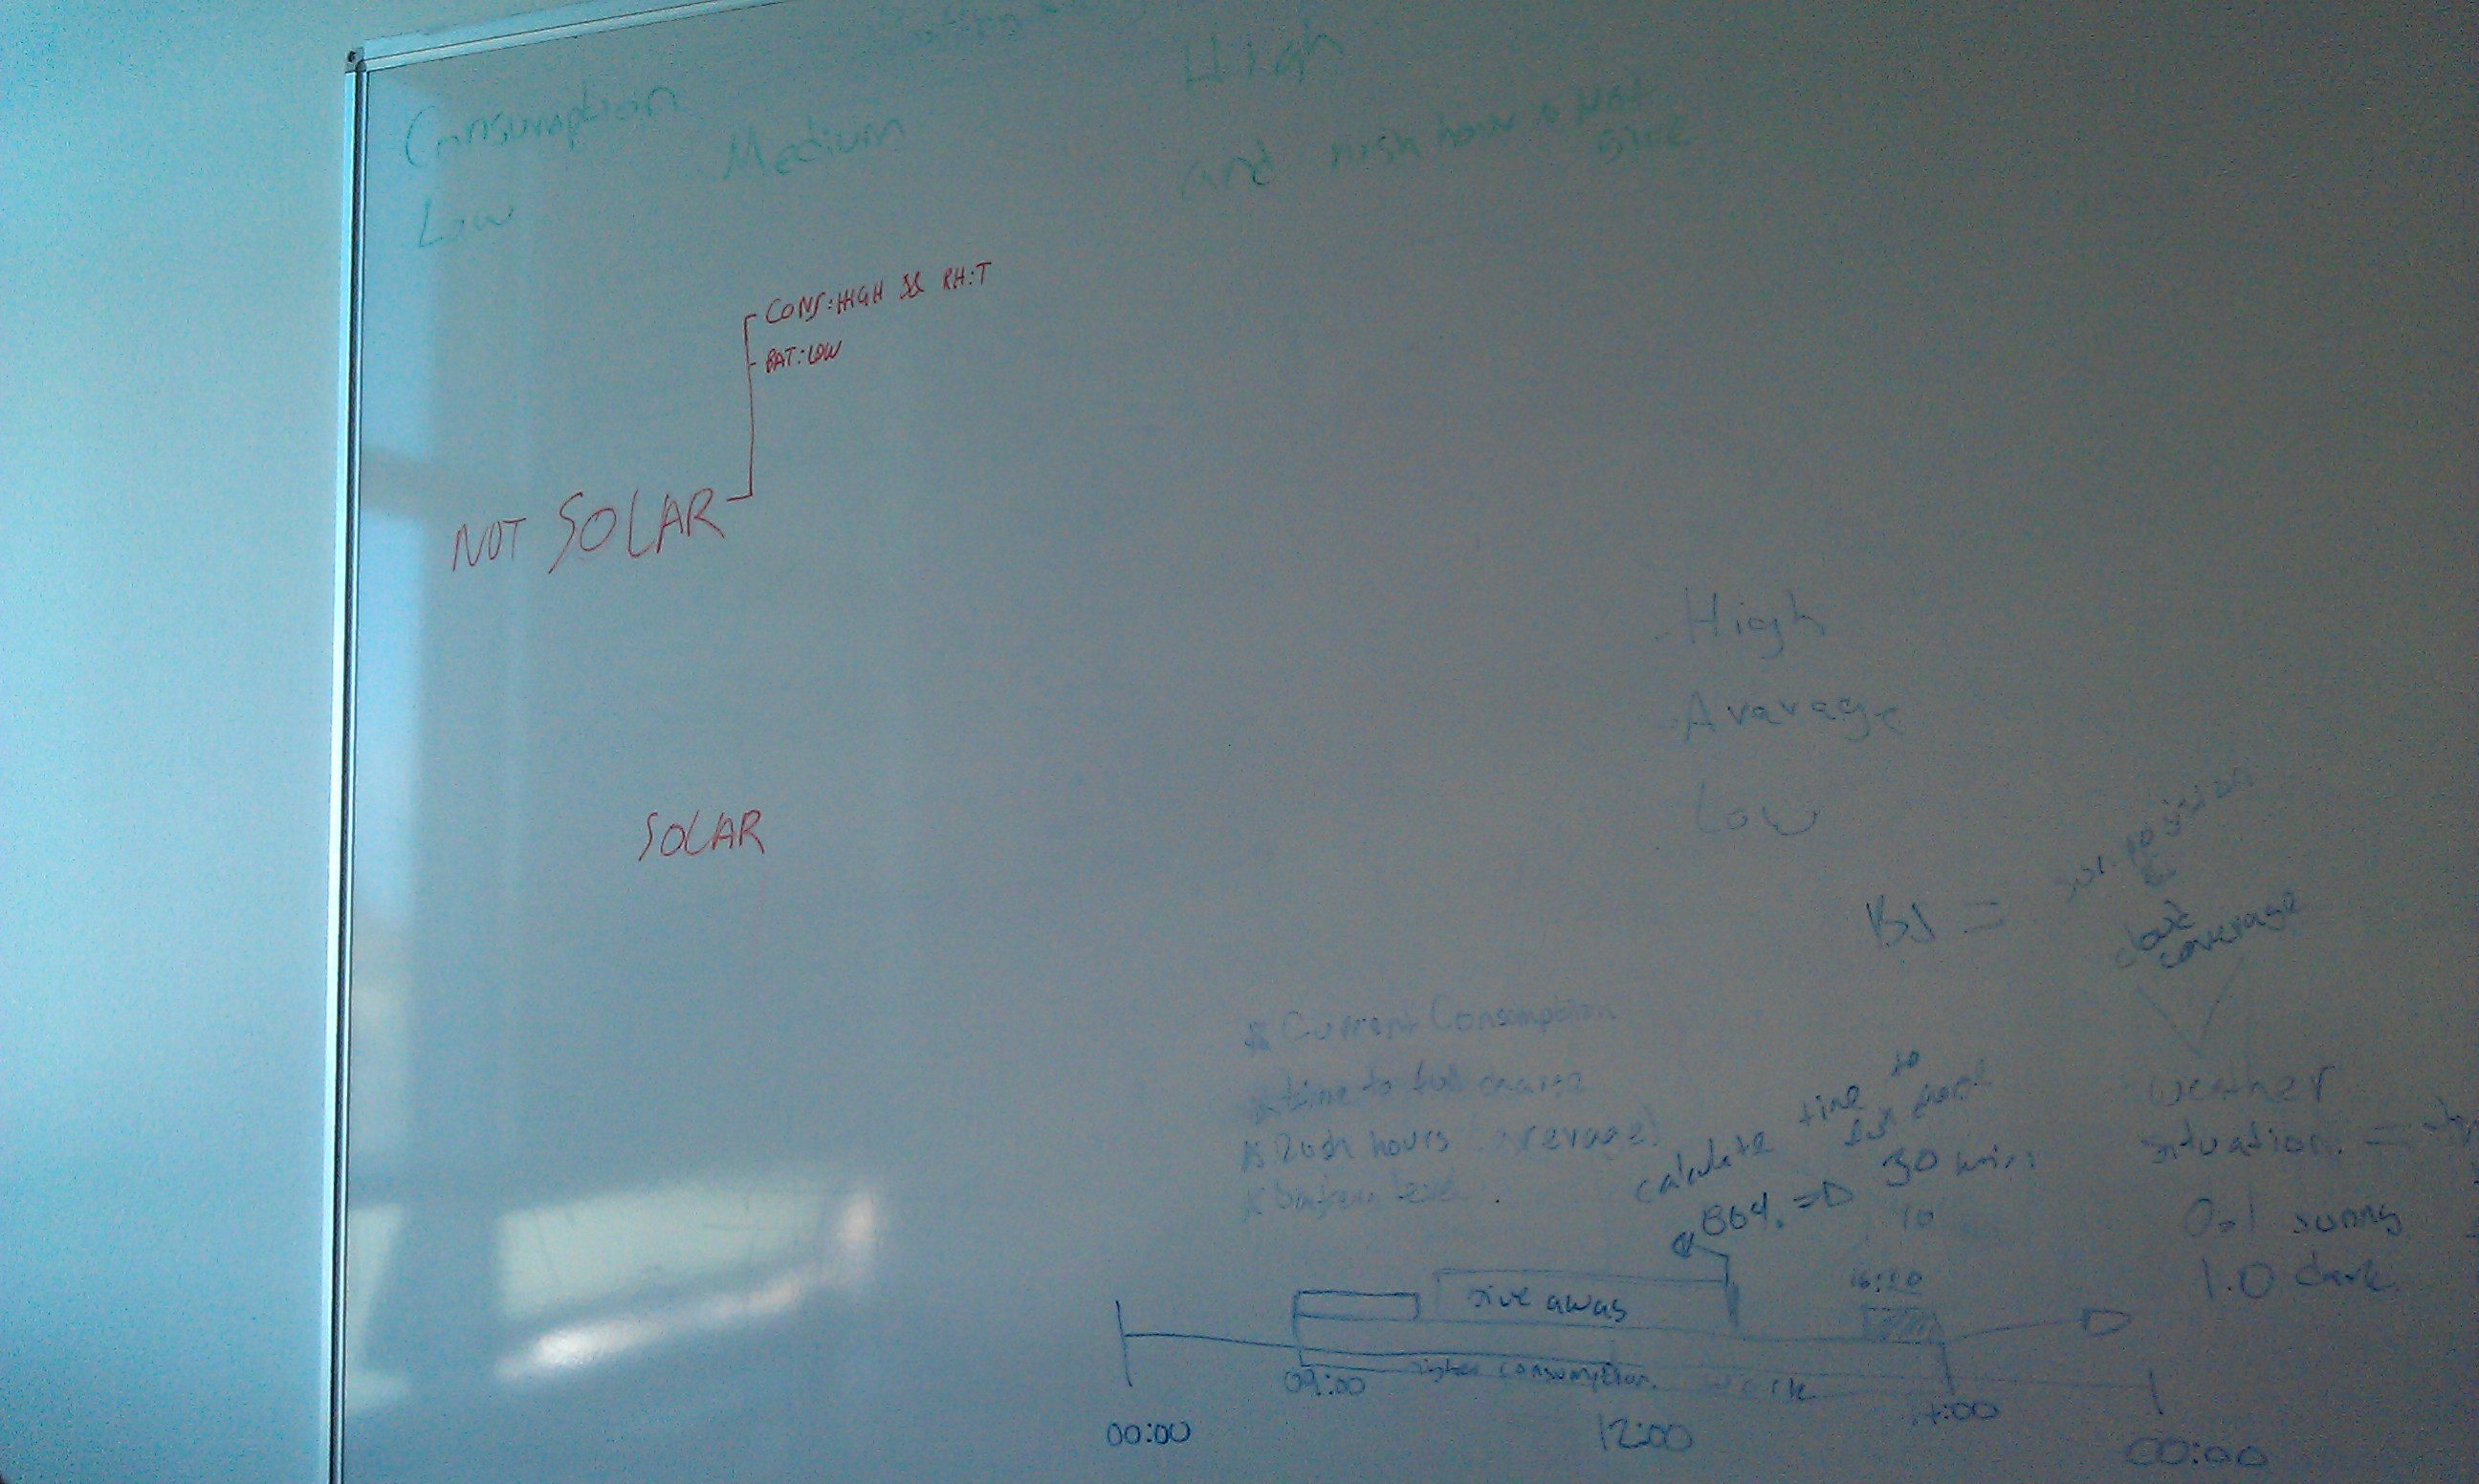 Consumption
Low
Medium
High
and rush hour
CONS:HIGH && RH:T
BAT:LOW
NOT SOLAR
SOLAR
- High
- Avarage
Low
=
sun position
&
coverage
weather
situation. =
0.1 sunny
1.0 dark
* Current Consumption
* time to full charge
* Rush hours
* level
calculate time to
30 mins
10
give away
higher consumption. work
09:00
00:00
12:00
17:00
00:00